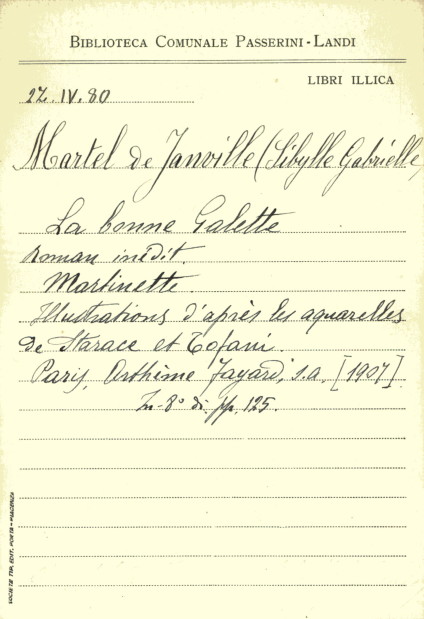 BIBLIOTECA COMUNALE PASSERINI-LANDI
LIBRI ILLICA
2Z.IV.80
Martel de Janville (Sibylle Gabrielle)
La bonne Galette
Roman inédit.
Martinette.
Illustrations d'après les aquarelles
de Starace et Tofani.
Paris, Arthème Fayard, s.a. [1907]
In-8° di pp. 125.